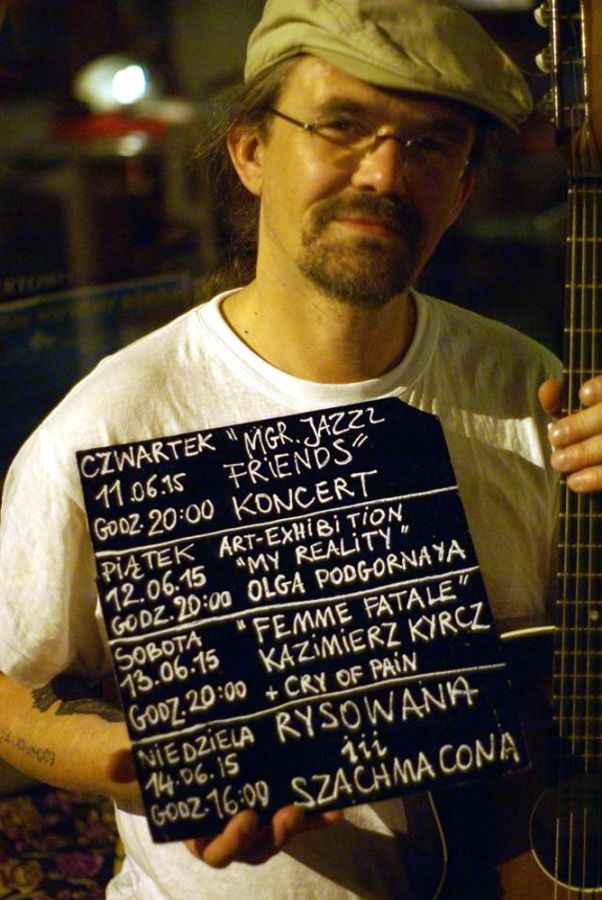 CZWARTEK "MGR. JAZZZ
11.06.15 FRIENDS"
GODZ. 20:00 KONCERT
PIĄTEK ART-EXHIBITION
12.06.15 "MY REALITY"
GODZ. 20:00 OLGA PODGORNAYA
SOBOTA "FEMME FATALE"
13.06.15 KAZIMIERZ KYRCZ
GODZ. 20:00 + CRY OF PAIN
NIEDZIELA RYSOWANA
14.06.15 iii
GODZ. 16:00 SZACHMACONA